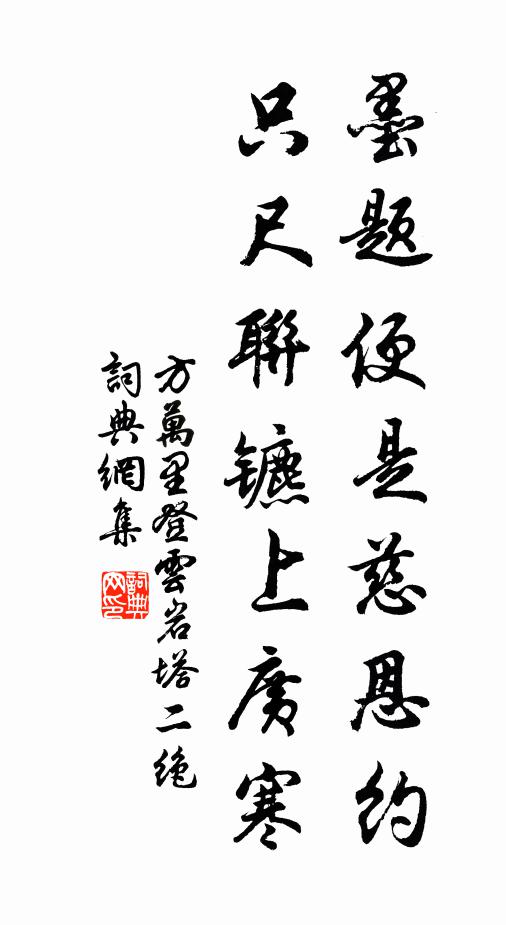 墨題便是慈恩約
只尺聯鑣上廣寒
方萬里登雲岩塔二絶
詞典網集
詞典网印